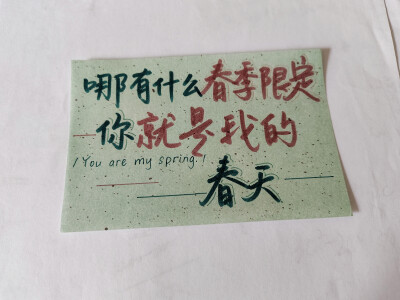 哪有什么春季限定
你就是我的
/ You are my spring. /
春天